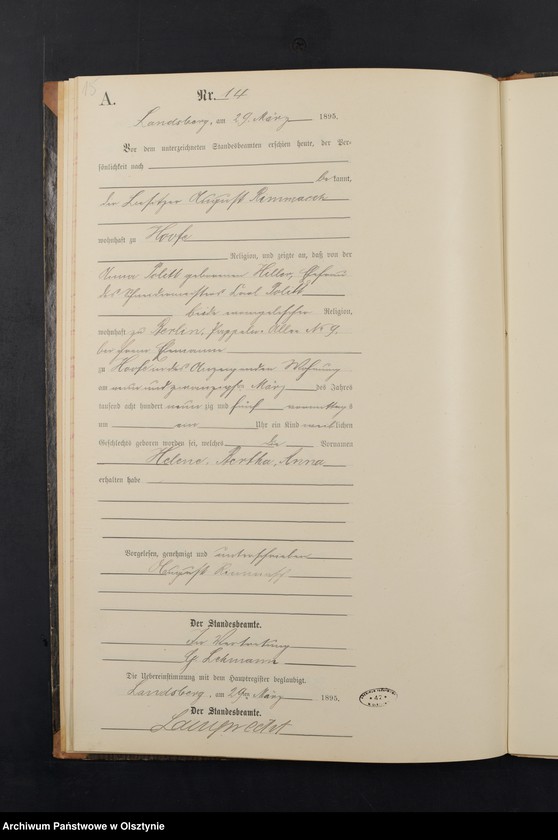 15
A.
Nr. 14
Landsberg, am 29. März 1895.
Vor dem unterzeichneten Standesbeamten erschien heute, der Per-
sönlichkeit nach
be kannt,
der Besitzer August
wohnhaft zu Hoofe
Religion, und zeigte an, daß von der
Anna Polett geborenen Heller, Ehefrau
des Polett
beide evangelischer Religion,
wohnhaft zu Berlin, Pappelm Allee No 9.
bei ihrem Ehemanne
zu Hoofe in des Anzeigenden Wohnung
am neun und zwanzigsten März des Jahres
tausend acht hundert neun zig und fünf vormittag s
um ein Uhr ein Kind weib lichen
Geschlechts geboren worden sei, welches die Vornamen
Helene, Bertha, Anna
erhalten habe
Vorgelesen, genehmigt und unterschrieben
August
Der Standesbeamte.
In Vertretung
G. Lehmann
Die Uebereinstimmung mit dem Hauptregister beglaubigt.
Landsberg, am 29ten März 1895.
Der Standesbeamte.
47
Archiwum Państwowe w Olsztynie